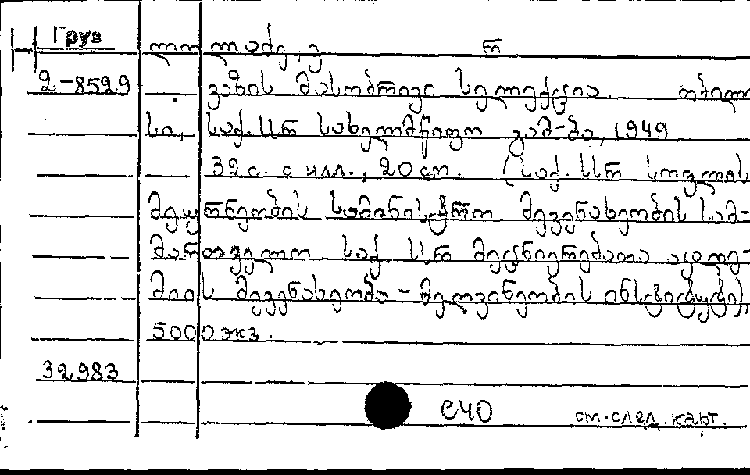 Груз
ლოლაძე, ვ რ
2-8529 ვაზის მასობრივი სელექცია. თბილი
სი, საქ.სსრ სახელმწიფო გამ-ბა, 1949
32 с. с илл., 20 см. (საქ. სსრ სოფლის
მეურნეობის სამინისტრო მევენახეობის სამ-
მართველო საქ. სსრ მეცნიერებათა აკადე-
მიის მევენახეობა-მეღვინეობის ინსტიტუტი),
5000 экз.
32983
С40 см. след. карт.